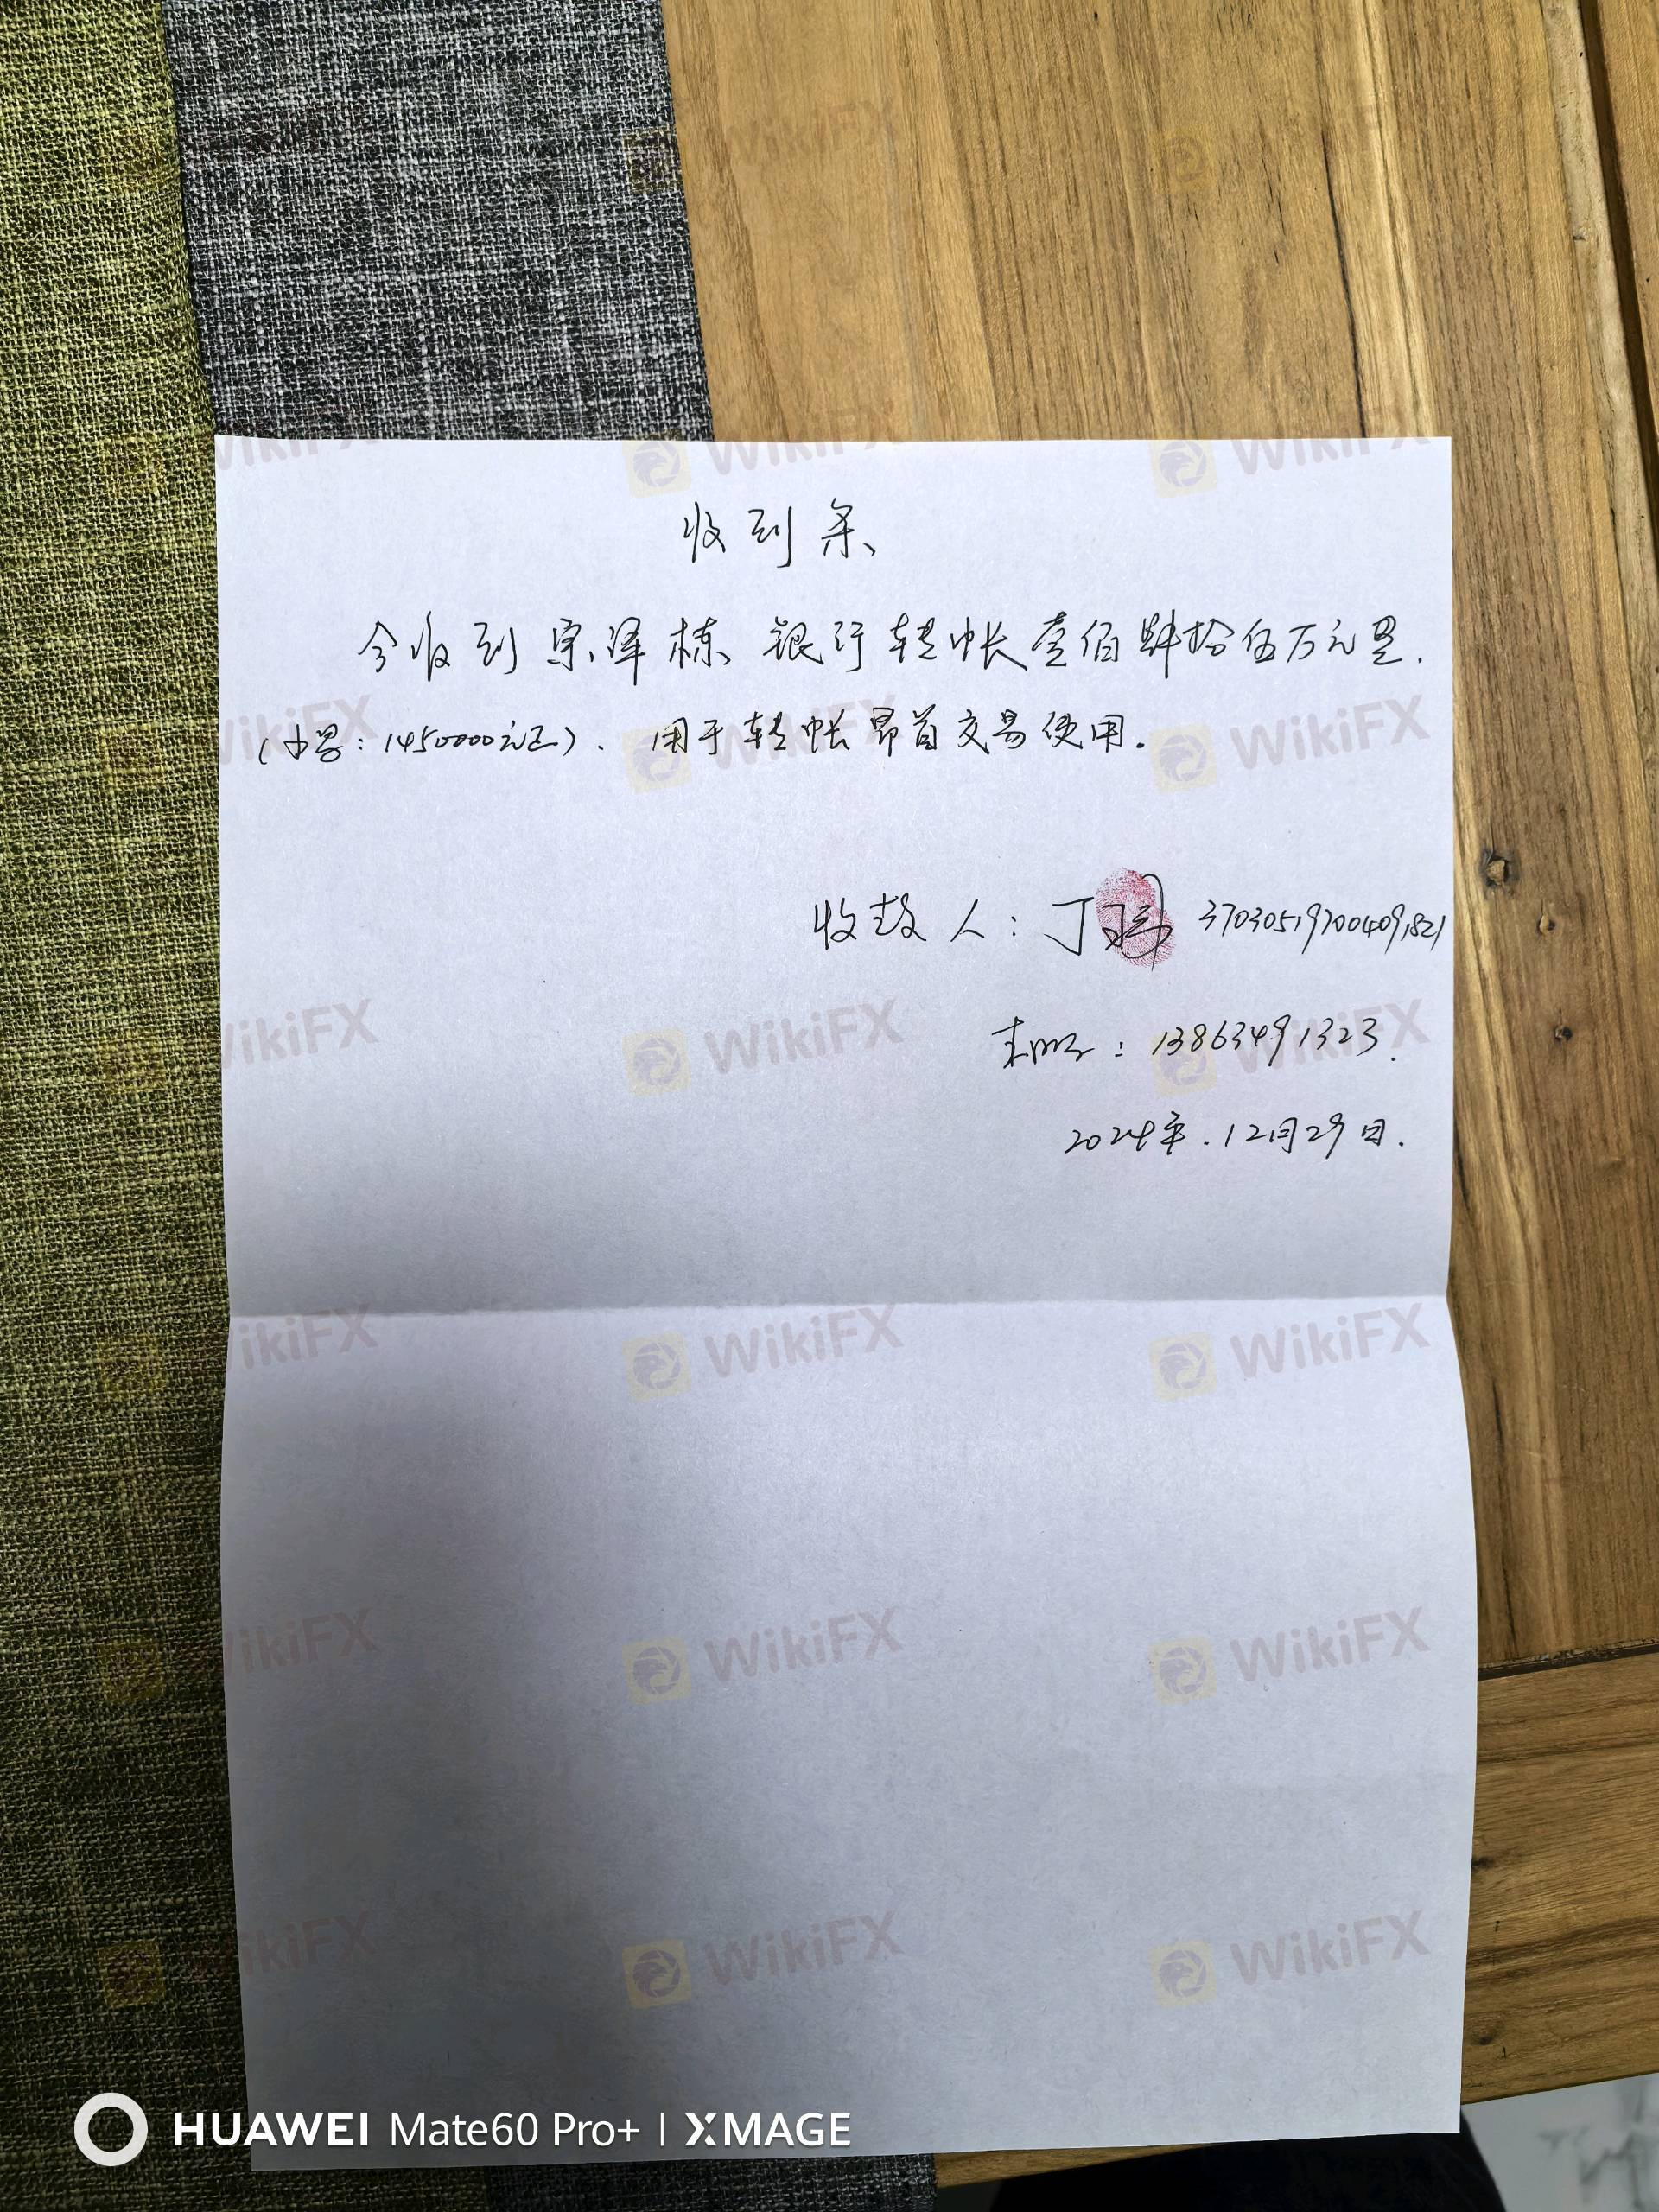 收到条
今收到宗泽栋 银行转帐壹佰肆拾伍万元整.
(小写: 1450000元正). 用于转帐昂首交易使用.
收款人: 丁 370305197004091821
: 13863491323.
2024年.12月29日.
WikiFX
HUAWEI Mate60 Pro+ | XMAGE